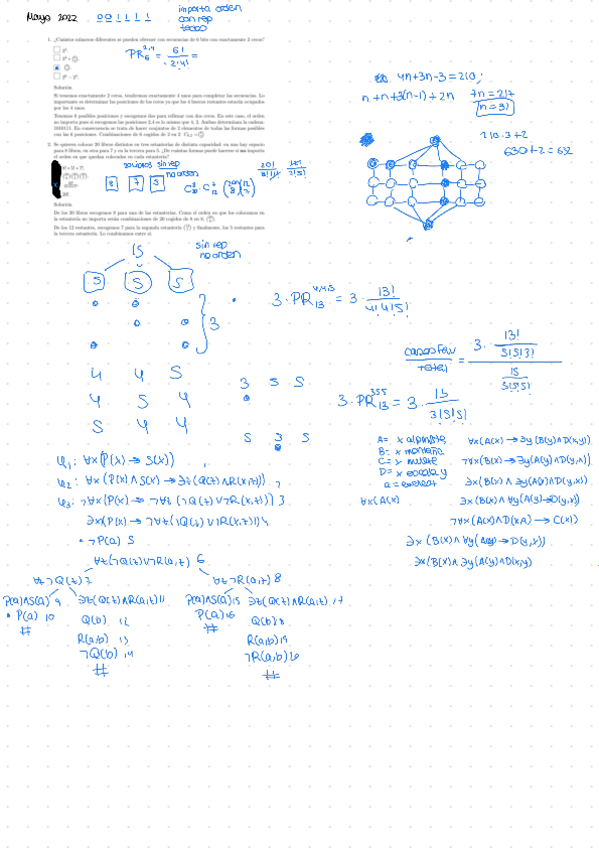 Mayo 2022
0 0 1 1 1 1
importa orden
con rep
1. ¿Cuántos números diferentes se pueden obtener con secuencias de 6 bits con exactamente 2 ceros?
Solución
Si tenemos exactamente 2 ceros, tendremos exactamente 4 unos para completar las secuencias. Lo
importante es determinar las posiciones de los ceros ya que los 4 huecos restantes estarán ocupados
por los 4 unos.
Tenemos 6 posibles posiciones y escogemos dos para rellenar con dos ceros. En este caso, el orden
no importa pues si escogemos las posiciones 2,4 es lo mismo que 4, 2. Ambas determinan la cadena:
101011. En consecuencia se trata de hacer conjuntos de 2 elementos de todas las formas posibles
con las 6 posiciones. Combinaciones de 6 cogidos de 2 en 2
2. Se quieren colocar 20 libros distintos en tres estanterías de distinta capacidad: en una hay espacio
para 8 libros, en otra para 7 y en la tercera para 5. ¿De cuántas formas puede hacerse si no importa
el orden en que quedan colocados en cada estantería?
sin rep
no orden
8 7 5
Solución
De los 20 libros escogemos 8 para una de las estanterías. Como el orden en que los coloquemos en
la estantería no importa serán combinaciones de 20 cogidos de 8 en 8,
De los 12 restantes, escogemos 7 para la segunda estantería y finalmente, los 5 restantes para
la tercera estantería. Lo combinamos entre sí.
4n+3n-3=210,
n+n+3(n-1)+2n
7n=217
n=31
210·3+2
630+2=632
15
sin rep
no orden
5 5 5
3
3·PR₁₃^4,4,5 = 3· 13!/4!4!5!
4 4 5
4 5 4
5 4 4
3 5 5
5 3 5
casos fav/total = 3· 13!/5!5!3! / 15/5!5!5!
3·PR₁₃^355 = 3· 15/3!5!5!
φ₁: ∀x(P(x) → S(x))
φ₂: ∀x (P(x)∧S(x) → ∃t(Q(t)∧R(x,t)))
φ₃: ¬∀x(P(x) → ¬∀t (¬Q(t)∨¬R(x,t))) 3
∃x(P(x) → ¬∀t(¬Q(t)∨¬R(x,t))) 4
¬P(a) 5
∀t(¬Q(t)∨¬R(a,t)) 6
∀t¬Q(t) 7
∀t¬R(a,t) 8
P(a)∧S(a) 9
∃t(Q(t)∧R(a,t)) 11
P(a)∧S(a) 15
∃t(Q(t)∧R(a,t)) 17
P(a) 10
Q(b) 12
P(a) 16
Q(b) 18
R(a,b) 13
R(a,b) 19
¬Q(b) 14
¬R(a,b) 20
A= x alpinista
B= x montaña
C= x muere
D= x escala y
∀x(A(x) → ∃y(B(y)∧D(x,y)))
¬∀x(B(x) → ∃y(A(y)∧D(y,x)))
∃x(B(x) ∧ ∃y(A(y)∧D(y,x)))
∀x(A(x)
∃x(B(x) ∧ ∀y(A(y)→D(y,x))
¬∀x(A(x)∧D(x,a) → C(x))
∃x (B(x)∧ ∀y(A(y) → D(y,x)))
∃x(B(x)∧ ∃y(A(y)∧D(x,y)